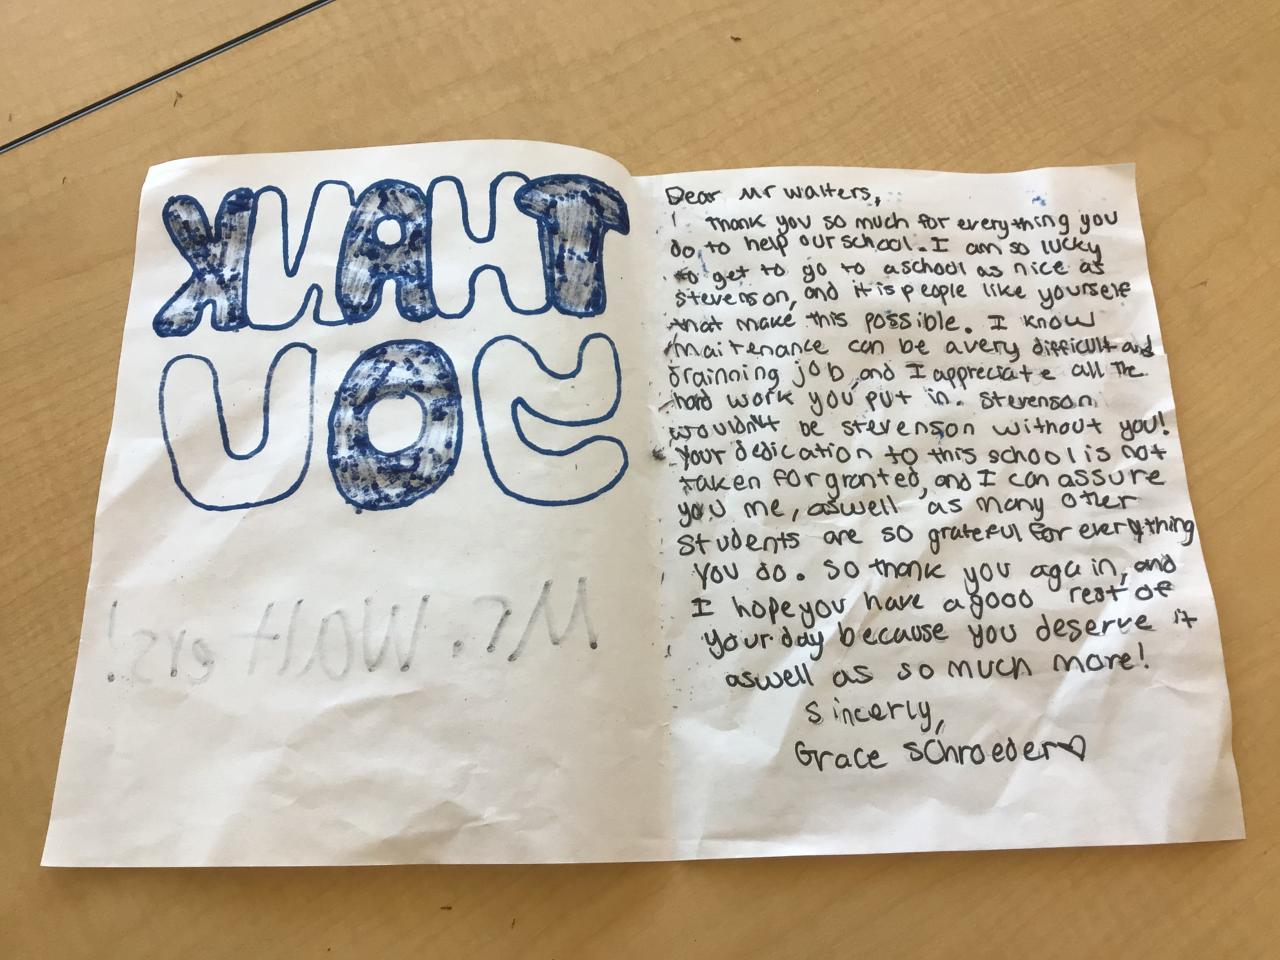 THANK
YOU
Mr. Walters!
Dear Mr walters,
Thank you so much for everything you
do to help our school. I am so lucky
to get to go to a school as nice as
stevenson, and it is people like yourself
that make this possible. I know
maitenance can be a very difficult and
drainning job, and I appreciate all the
hard work you put in. Stevenson
wouldn't be stevenson without you!
Your dedication to this school is not
taken for granted, and I can assure
you me, aswell as many other
students are so grateful for everything
you do. So thank you again, and
I hope you have a good rest of
your day because you deserve it
aswell as so much more!
Sincerly,
Grace Schroeder♡